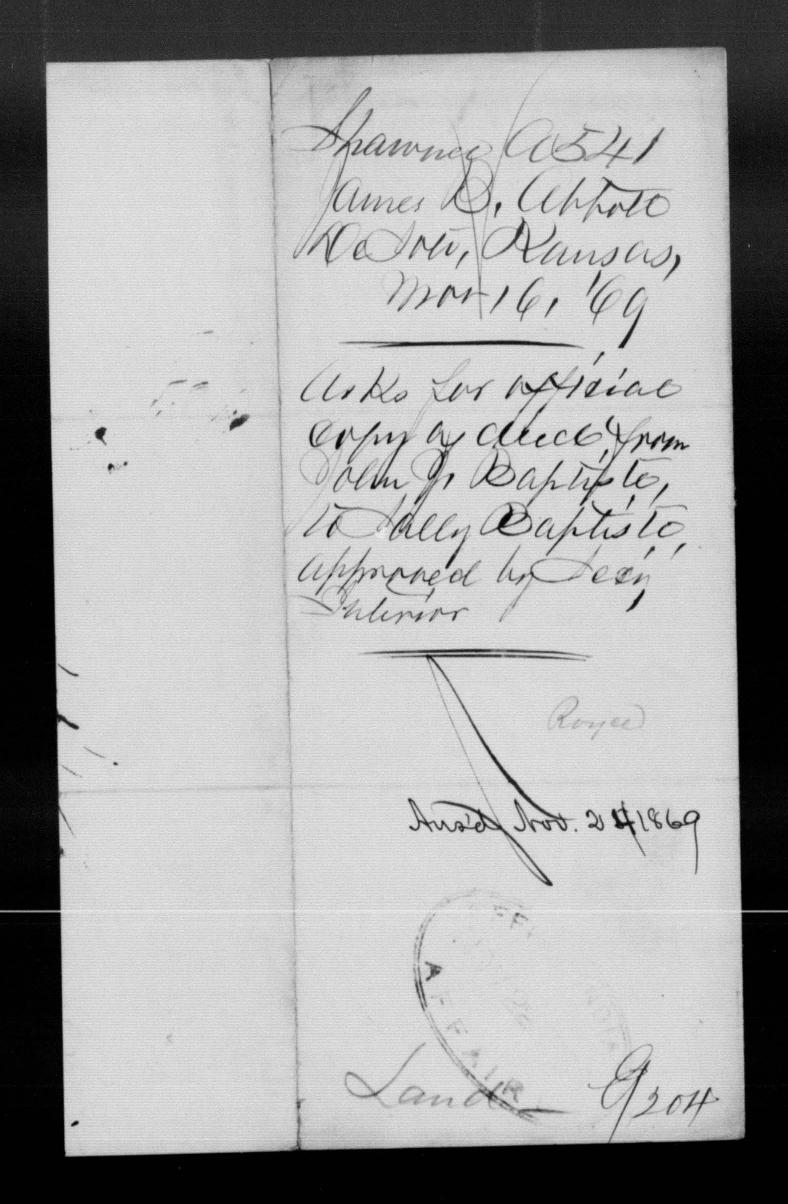 Shawnee A541
James B. Abbott
De Soto, Kansas,
Nov 16, '69
Asks for official
copy of deed, from
John Baptiste,
to Sally Baptiste,
approved by Secy
Interior
Royce
Ans'd Nov. 24 1869
OFFI INDIA
NOV 22
AFFAIR
Land
204